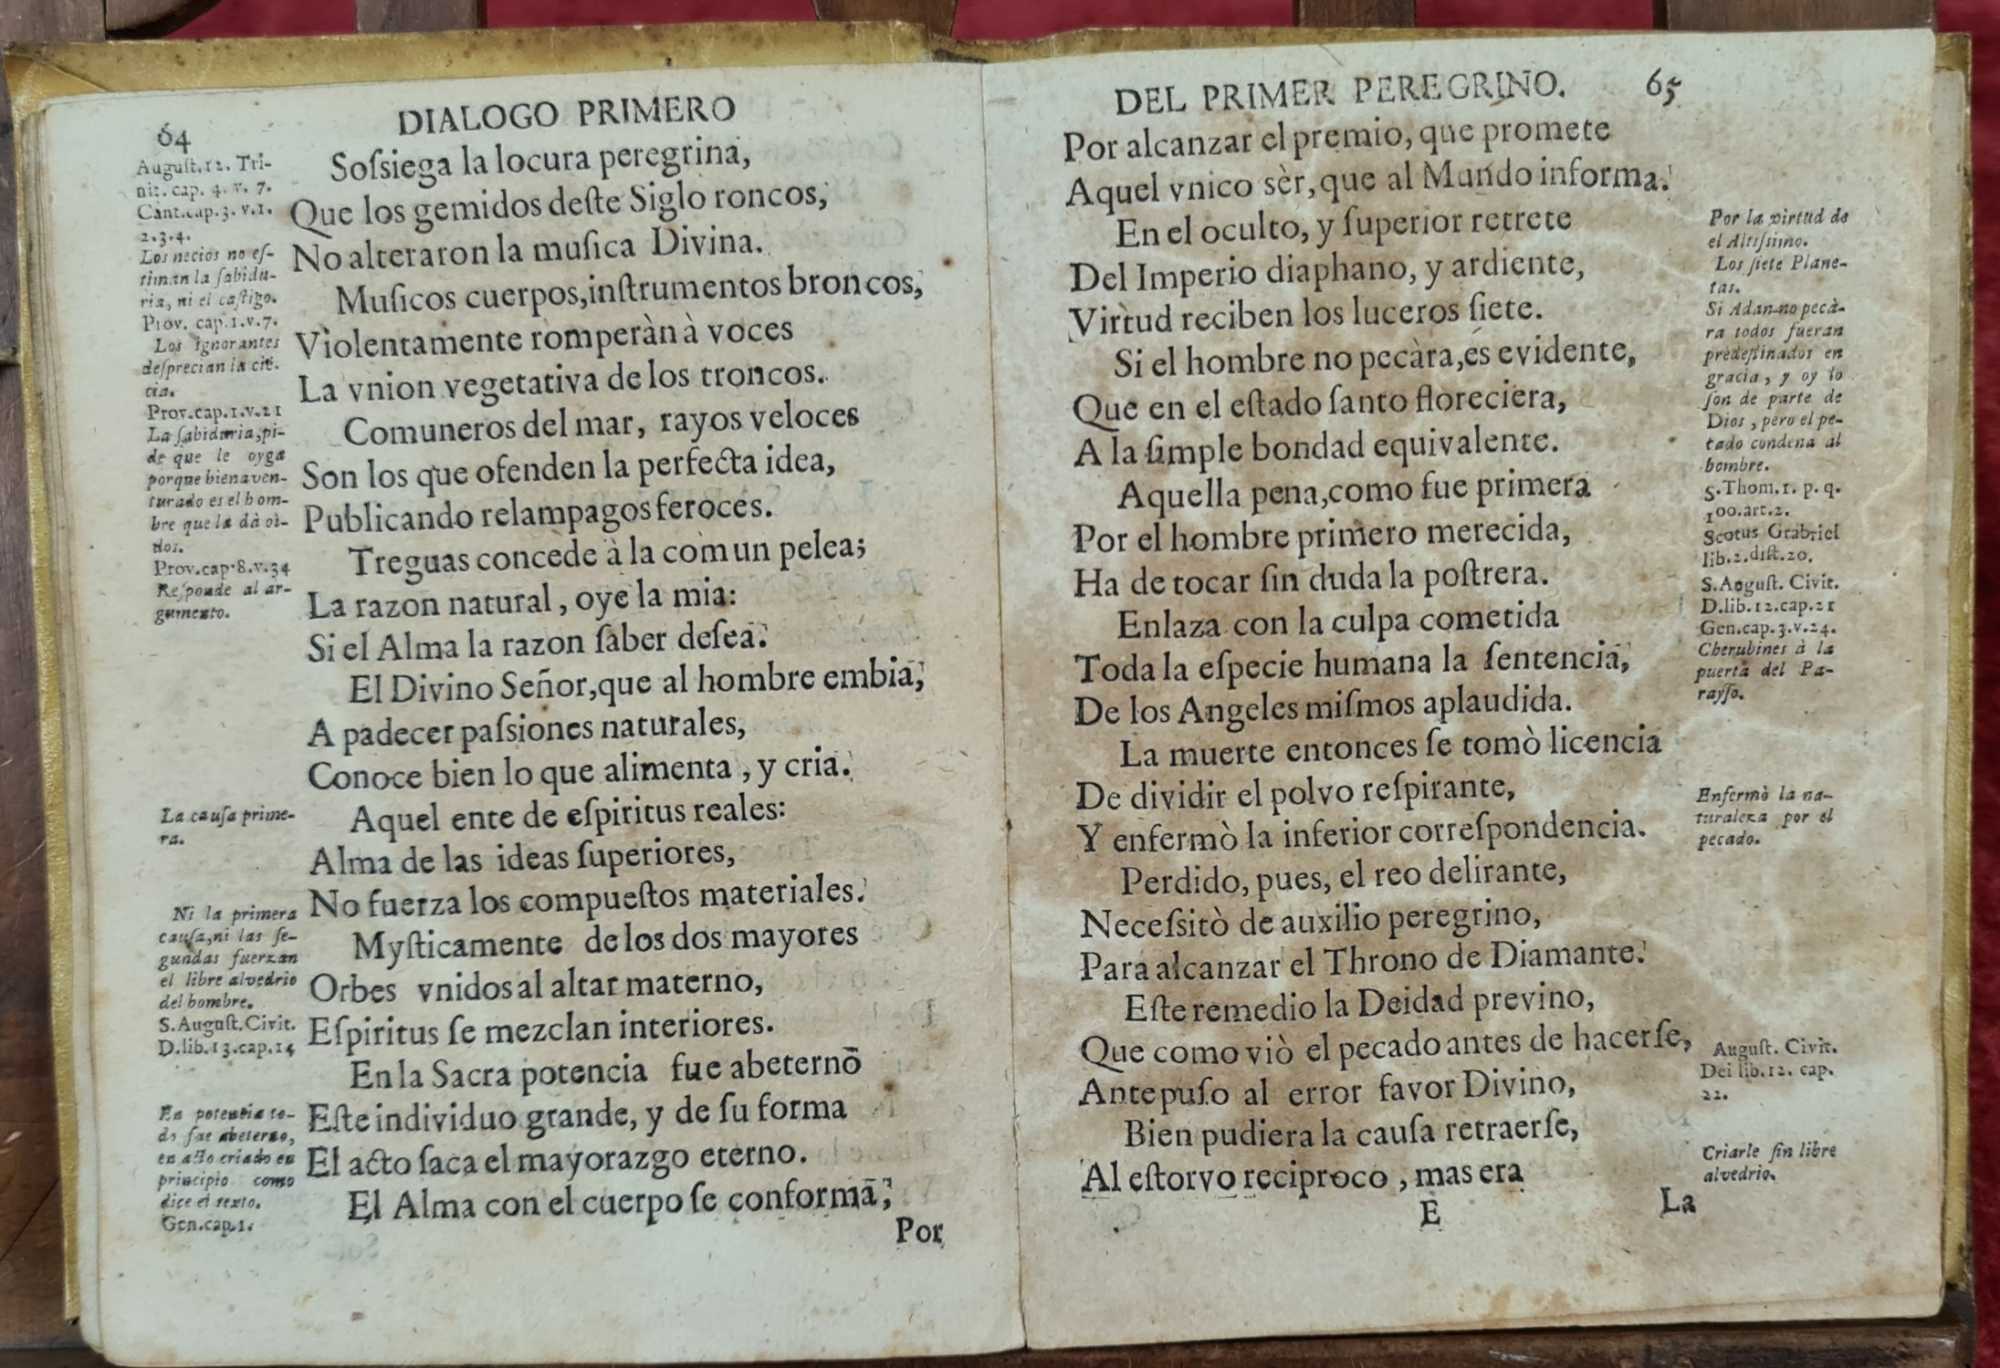 64
DIALOGO PRIMERO
Soſsiega la locura peregrina,
Que los gemidos deſte Siglo roncos,
No alteraron la muſica Divina.
Muſicos cuerpos, inſtrumentos broncos,
Violentamente romperàn à voces
La vnion vegetativa de los troncos.
Comuneros del mar, rayos veloces
Son los que ofenden la perfecta idea,
Publicando relampagos feroces.
Treguas concede à la comun pelea;
La razon natural, oye la mia:
Si el Alma la razon ſaber deſea.
El Divino Señor, que al hombre embia,
A padecer paſsiones naturales,
Conoce bien lo que alimenta, y cria.
Aquel ente de eſpiritus reales:
Alma de las ideas ſuperiores,
No fuerza los compueſtos materiales.
Myſticamente de los dos mayores
Orbes vnidos al altar materno,
Eſpiritus ſe mezclan interiores.
En la Sacra potencia fue abeterno
Eſte individuo grande, y de ſu forma
El acto ſaca el mayorazgo eterno.
El Alma con el cuerpo ſe conforma,
Por
Auguſt. 12. Tri-
nit. cap. 4. v. 7.
Cant. cap. 3. v. 1.
2. 3. 4.
Los necios no eſ-
timan la ſabidu-
ria, ni el caſtigo.
Prov. cap. 1. v. 7.
Los ignorantes
deſprecian la ciē-
cia.
Prov. cap. 1. v. 21
La ſabiduria, pi-
de que le oyga
porque bienaven-
turado es el hom-
bre que la dà oì-
dos.
Prov. cap. 8. v. 34
Reſponde al ar-
gumento.
La cauſa prime-
ra.
Ni la primera
cauſa, ni las ſe-
gundas fuerzan
el libre alvedrio
del hombre.
S. Auguſt. Civit.
D. lib. 13. cap. 14
En potentia to-
do fue abeterno,
en acto criado en
principio como
dice el texto.
Gen. cap. 1.
DEL PRIMER PEREGRINO.
65
Por alcanzar el premio, que promete
Aquel vnico sèr, que al Mundo informa.
En el oculto, y ſuperior retrete
Del Imperio diaphano, y ardiente,
Virtud reciben los luceros ſiete.
Si el hombre no pecàra, es evidente,
Que en el eſtado ſanto floreciera,
A la ſimple bondad equivalente.
Aquella pena, como fue primera
Por el hombre primero merecida,
Ha de tocar ſin duda la poſtrera.
Enlaza con la culpa cometida
Toda la eſpecie humana la ſentencia,
De los Angeles miſmos aplaudida.
La muerte entonces ſe tomò licencia
De dividir el polvo reſpirante,
Y enfermò la inferior correſpondencia.
Perdido, pues, el reo delirante,
Neceſsitò de auxilio peregrino,
Para alcanzar el Throno de Diamante.
Eſte remedio la Deidad previno,
Que como viò el pecado antes de hacerſe,
Antepuſo al error favor Divino,
Bien pudiera la cauſa retraerſe,
Al eſtorvo reciproco, mas era
E
La
Por la virtud de
el Altiſsimo.
Los ſiete Plane-
tas.
Si Adan no pecà-
ra todos fueran
predeſtinados en
gracia, y oy lo
ſon de parte de
Dios, pero el pe-
cado condena al
hombre.
S. Thom. 1. p. q.
100. art. 2.
Scotus Grabriel
lib. 2. diſt. 20.
S. Auguſt. Civit.
D. lib. 12. cap. 21
Gen. cap. 3. v. 24.
Cherubines à la
puerta del Pa-
rayſo.
Enfermò la na-
turaleza por el
pecado.
Auguſt. Civit.
Dei lib. 12. cap.
22.
Criarle ſin libre
alvedrio.